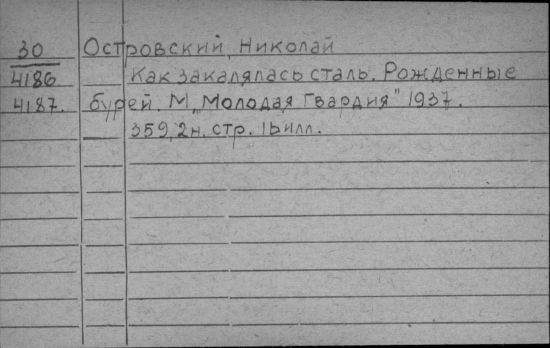 30 Островский, Николай
4186 Как закалялась сталь. Рожденные
4187. бурей. М. „Молодая Гвардия" 1937.
359, 2н. стр. 1 ь илл.